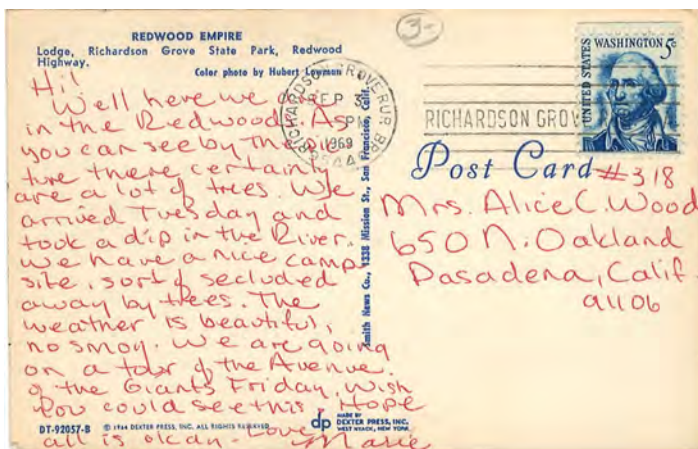 REDWOOD EMPIRE
Lodge, Richardson Grove State Park, Redwood
Highway.
Color photo by Hubert Lowman
Hi!
Well here we are
in the Redwoods. As
you can see by the pic
ture there certainly
are a lot of trees. We
arrived Tuesday and
took a dip in the River.
We have a nice camp
site, sort of secluded
away by trees. The
weather is beautiful,
no smog. We are going
on a tour of the Avenue
of the Giants Friday. Wish
you could see this. Hope
all is okay. Love
Marie
DT-92057-B © 1964 DEXTER PRESS, INC. ALL RIGHTS RESERVED
dp
MADE BY
DEXTER PRESS, INC.
WEST NYACK, NEW YORK
Smith News Co., 1338 Mission St., San Francisco, Calif.
3-
RICHARDSON GROVE RUR. BR.
SEP 3
PM
1969
RICHARDSON GROV
UNITED STATES
WASHINGTON 5c
Post Card
#318
Mrs. Alice C. Wood
650 N. Oakland
Pasadena, Calif
91106